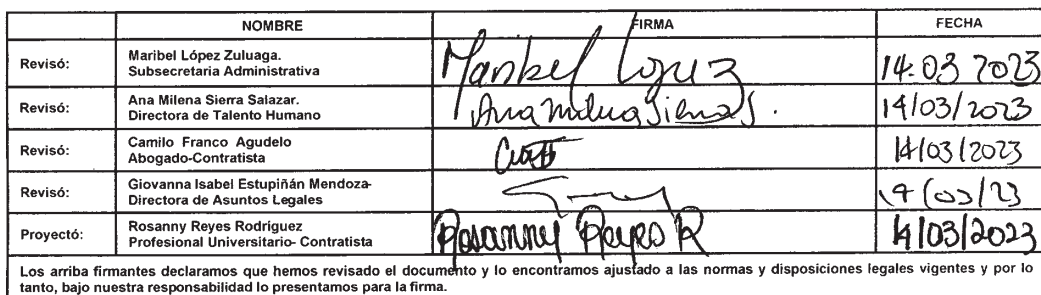 NOMBRE FIRMA FECHA
Revisó: Maribel López Zuluaga.
Subsecretaria Administrativa
Maribel López 14.03 2023
Revisó: Ana Milena Sierra Salazar.
Directora de Talento Humano
Ana Milena Sierra S. 14/03/2023
Revisó: Camilo Franco Agudelo
Abogado-Contratista
14/03/2023
Revisó: Giovanna Isabel Estupiñán Mendoza-
Directora de Asuntos Legales
14/03/23
Proyectó: Rosanny Reyes Rodríguez
Profesional Universitario- Contratista
Rosanny Reyes R 14/03/2023
Los arriba firmantes declaramos que hemos revisado el documento y lo encontramos ajustado a las normas y disposiciones legales vigentes y por lo
tanto, bajo nuestra responsabilidad lo presentamos para la firma.